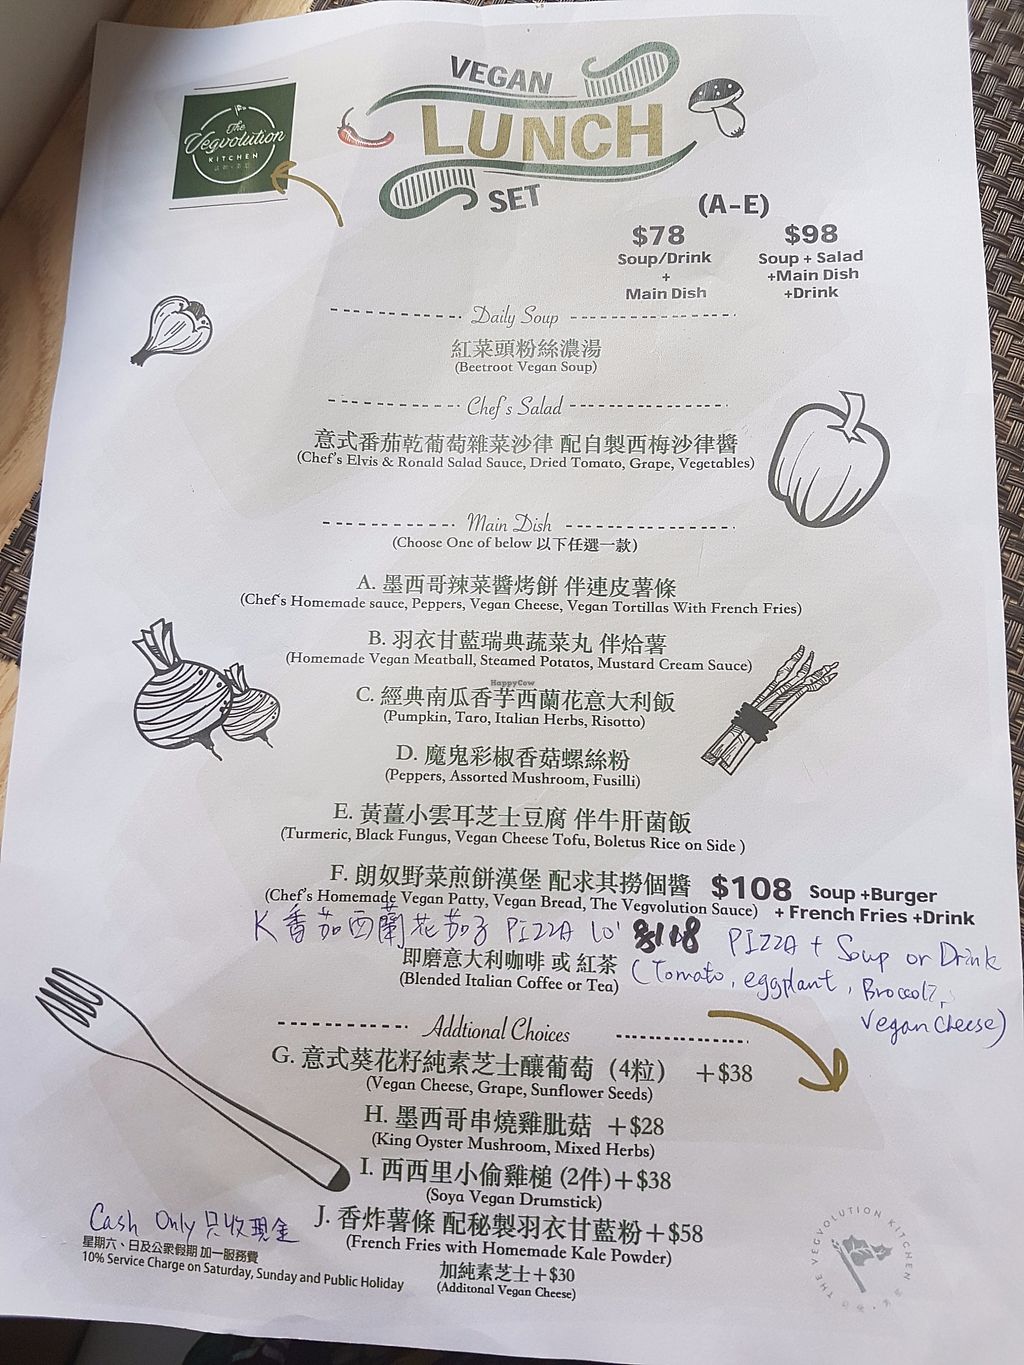 The
Vegvolution
KITCHEN
VEGAN
LUNCH
SET
(A-E)
$78
Soup/Drink
+
Main Dish
$98
Soup + Salad
+Main Dish
+Drink
Daily Soup
紅菜頭粉絲濃湯
(Beetroot Vegan Soup)
Chef's Salad
意式番茄乾葡萄雜菜沙律 配自製西梅沙律醬
(Chef's Elvis & Ronald Salad Sauce, Dried Tomato, Grape, Vegetables)
Main Dish
(Choose One of below 以下任選一款)
A. 墨西哥辣菜醬烤餅 伴連皮薯條
(Chef's Homemade sauce, Peppers, Vegan Cheese, Vegan Tortillas With French Fries)
B. 羽衣甘藍瑞典蔬菜丸 伴烚薯
(Homemade Vegan Meatball, Steamed Potatos, Mustard Cream Sauce)
HappyCow
C. 經典南瓜香芋西蘭花意大利飯
(Pumpkin, Taro, Italian Herbs, Risotto)
D. 魔鬼彩椒香菇螺絲粉
(Peppers, Assorted Mushroom, Fusilli)
E. 黃薑小雲耳芝士豆腐 伴牛肝菌飯
(Turmeric, Black Fungus, Vegan Cheese Tofu, Boletus Rice on Side )
F. 朗奴野菜煎餅漢堡 配求其撈個醬 $108 Soup +Burger
(Chef's Homemade Vegan Patty, Vegan Bread, The Vegvolution Sauce) + French Fries +Drink
K 香茄西蘭花茄子 PIZZA 10' $118 PIZZA + Soup or Drink
(Tomato, eggplant, Broccoli,
Vegan cheese)
即磨意大利咖啡 或 紅茶
(Blended Italian Coffee or Tea)
Addtional Choices
G. 意式葵花籽純素芝士釀葡萄 (4粒) +$38
(Vegan Cheese, Grape, Sunflower Seeds)
H. 墨西哥串燒雞肶菇 +$28
(King Oyster Mushroom, Mixed Herbs)
I. 西西里小偷雞槌 (2件)+$38
(Soya Vegan Drumstick)
J. 香炸薯條 配秘製羽衣甘藍粉+$58
(French Fries with Homemade Kale Powder)
加純素芝士+$30
(Additonal Vegan Cheese)
Cash Only 只收現金
星期六、日及公眾假期 加一服務費
10% Service Charge on Saturday, Sunday and Public Holiday
THE VEGVOLUTION KITCHEN